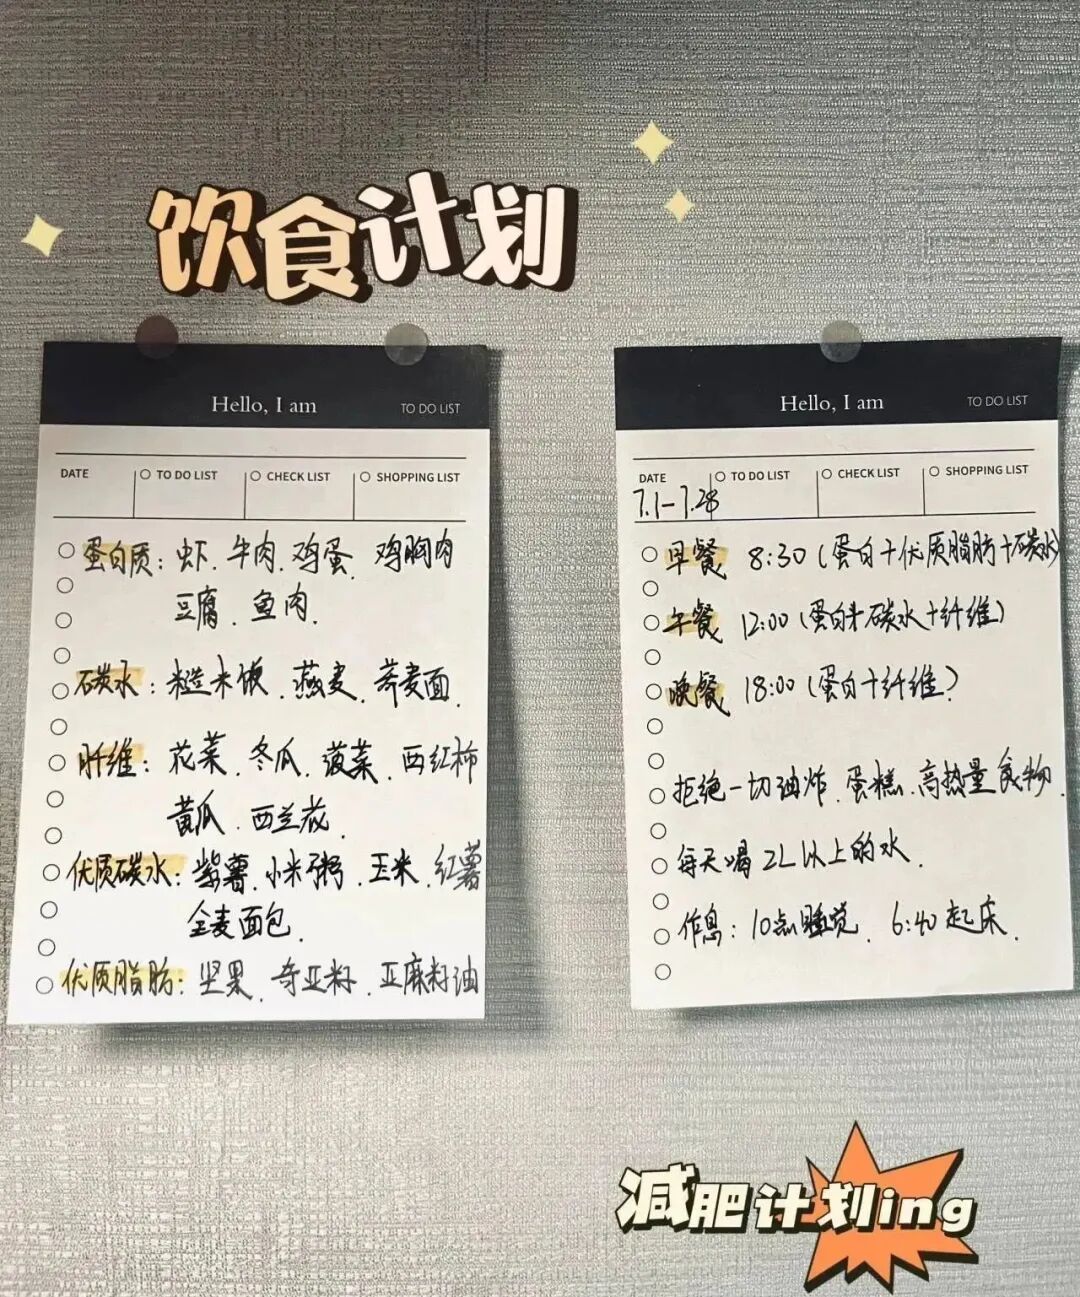 饮食计划
Hello, I am
TO DO LIST
DATE
TO DO LIST
CHECK LIST
SHOPPING LIST
蛋白质：虾、牛肉、鸡蛋、鸡胸肉
豆腐、鱼肉.
碳水：糙米饭、燕麦、荞麦面.
纤维：花菜、冬瓜、菠菜、西红柿
黄瓜、西兰花.
优质碳水：紫薯、小米粥、玉米、红薯
全麦面包.
优质脂肪：坚果、奇亚籽、亚麻籽油
Hello, I am
TO DO LIST
DATE
TO DO LIST
CHECK LIST
SHOPPING LIST
7.1-7.28
早餐 8:30（蛋白+优质脂肪+碳水）
午餐 12:00（蛋白+碳水+纤维）
晚餐 18:00（蛋白+纤维）
拒绝一切油炸、蛋糕、高热量食物.
每天喝2L以上的水.
作息：10点睡觉、6:40起床.
减肥计划ing